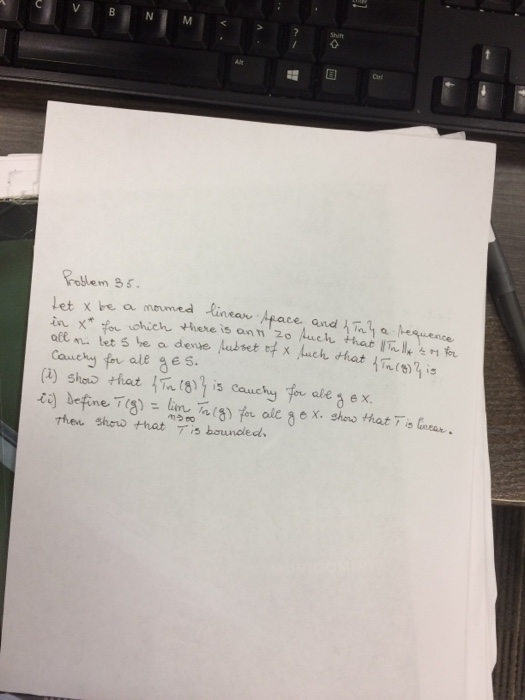 C V B N M < , > . ? / Shift
Alt Ctrl
Problem 35.
Let X be a normed linear space and {Tn} a sequence
in X* for which there is an M ≥0 such that ||Tn||* ≤ M for
all n. let S be a dense subset of X such that {Tn(g)} is
Cauchy for all g ∈ S.
(i) show that {Tn(g)} is cauchy for all g ∈ X.
ii) Define T(g) = lim n→∞ Tn(g) for all g ∈ X. show that T is linear.
then show that T is bounded.